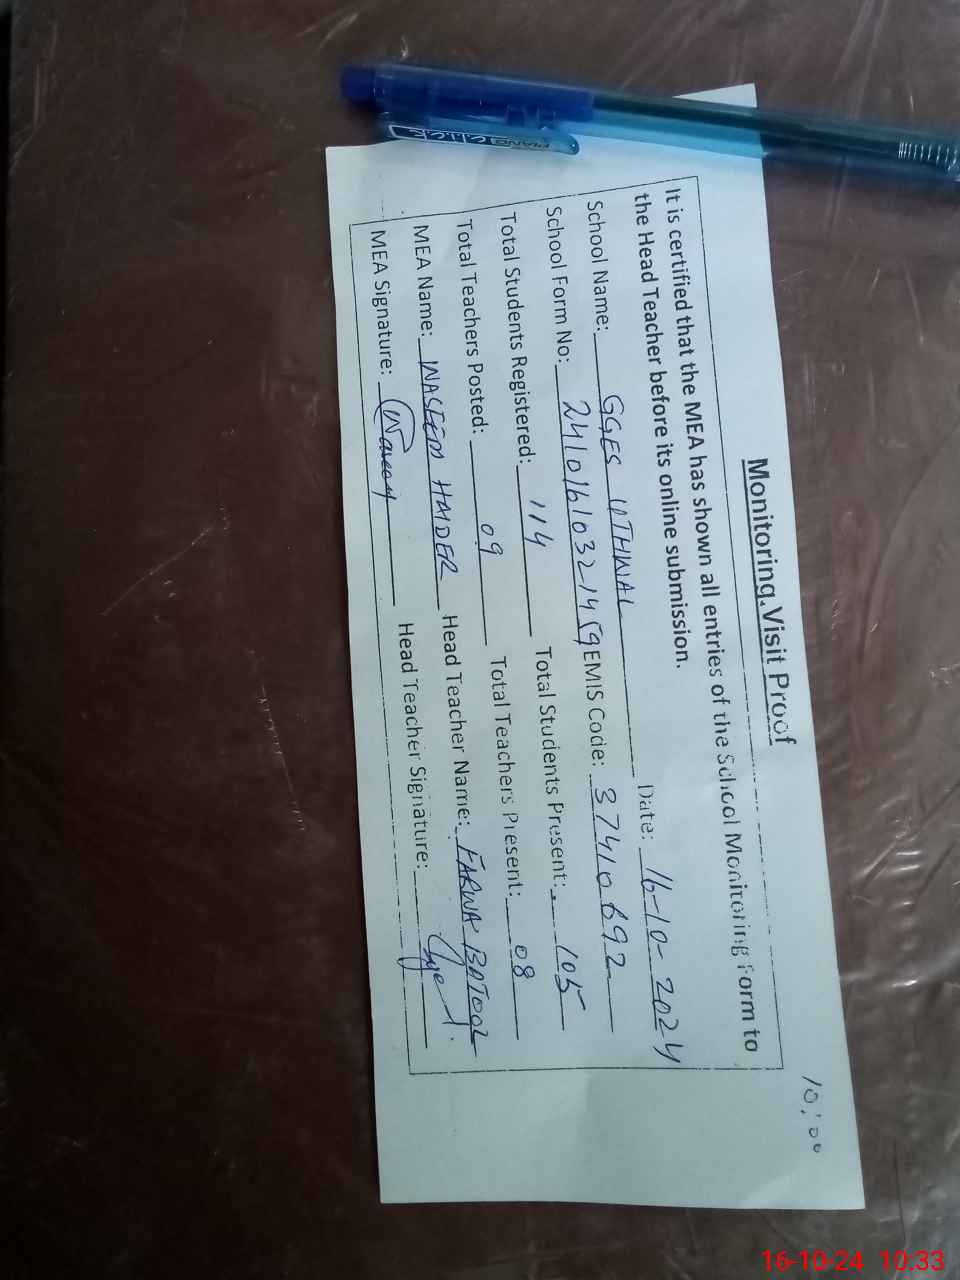 10:00
Monitoring Visit Proof
It is certified that the MEA has shown all entries of the School Monitoring Form to
the Head Teacher before its online submission.
School Name: GGES UTHWAL Date: 16-10-2024
School Form No: 24101610321459 EMIS Code: 37410692
Total Students Registered: 114 Total Students Present: 105
Total Teachers Posted: 09 Total Teachers Present: 08
MEA Name: WASEEM HAIDER Head Teacher Name: FARWA BATOOL
MEA Signature: Head Teacher Signature:
PIANO
16-10-24 10:33